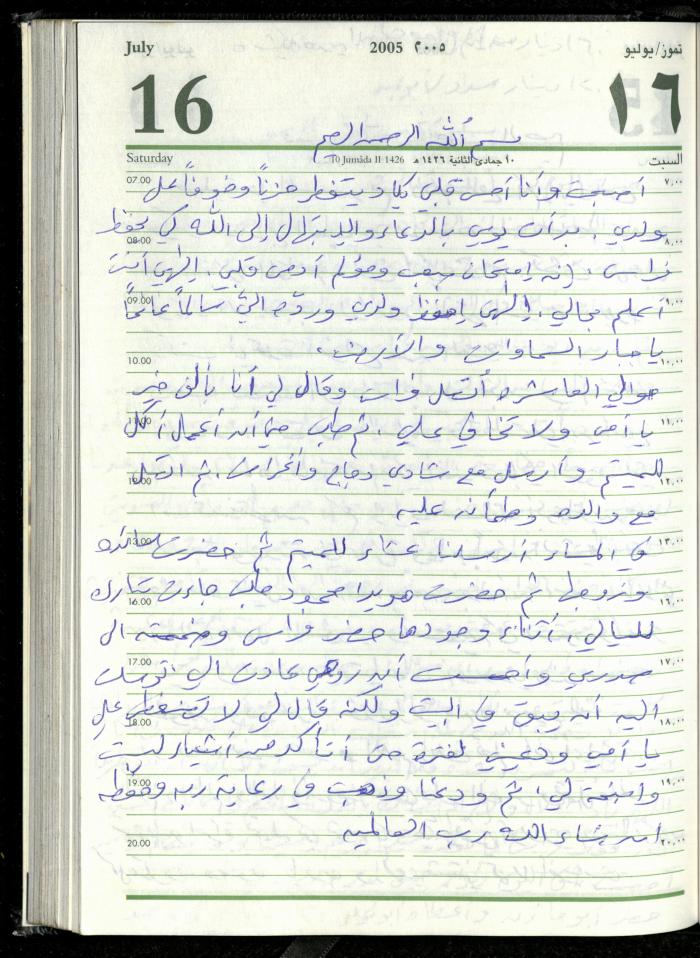 July 2005 ٢٠٠٥ تموز/يوليو
16 ١٦
بسم الله الرحمن الرحيم
Saturday 10 Jumâda II 1426 ١٠ جمادى الثانية ١٤٢٦ هـ السبت
07.00 أصبحت وأنا أحس قلبي يكاد ينفطر حزناً وخوفاً على ٧,٠٠
ولدي، بدأت يومي بالدعاء والابتهال إلى الله كي يحفظ
08.00 ٨,٠٠
فراس، إنه امتحان صعب ومؤلم أدمى قلبي، إلهي أنت
09.00 أعلم بحالي، إلهي احفظ ولدي وردّه اليّ سالماً غانماً ٩,٠٠
يا جبار السماوات والأرض.
10.00 ١٠,٠٠
حوالي العاشرة أتصل فراس وقال لي أنا بألف خير
11.00 يا أمي ولا تخافي علي، ثم طلب مني أن أعمل أكل ١١,٠٠
للميتم وأرسل مع شادي دجاج وأغراض، ثم اتصل
12.00 ١٢,٠٠
مع والده وطمأنه عليه
13.00 في المساء أرسلنا عشاء للميتم ثم حضرت عائده ١٣,٠٠
وزوجها ثم حضرت هويدا محمود جاءت تبارك
16.00 ١٦,٠٠
لليالي، أثناء وجودها حضر فراس وضممته الى
17.00 ١٧,٠٠
صدري وأحسست أن روحي عادت الي توسلت
اليه أن يبقى في البيت ولكنه قال لي لا تضغطي علي
18.00 ١٨,٠٠
يا أمي ودعيني لفترة حتى أتأكد من أشياء ليست
19.00 واضحة لي، ثم ودعنا وذهب في رعاية ربه وحفظه ١٩,٠٠
ان شاء الله رب العالمين
20.00 ٢٠,٠٠